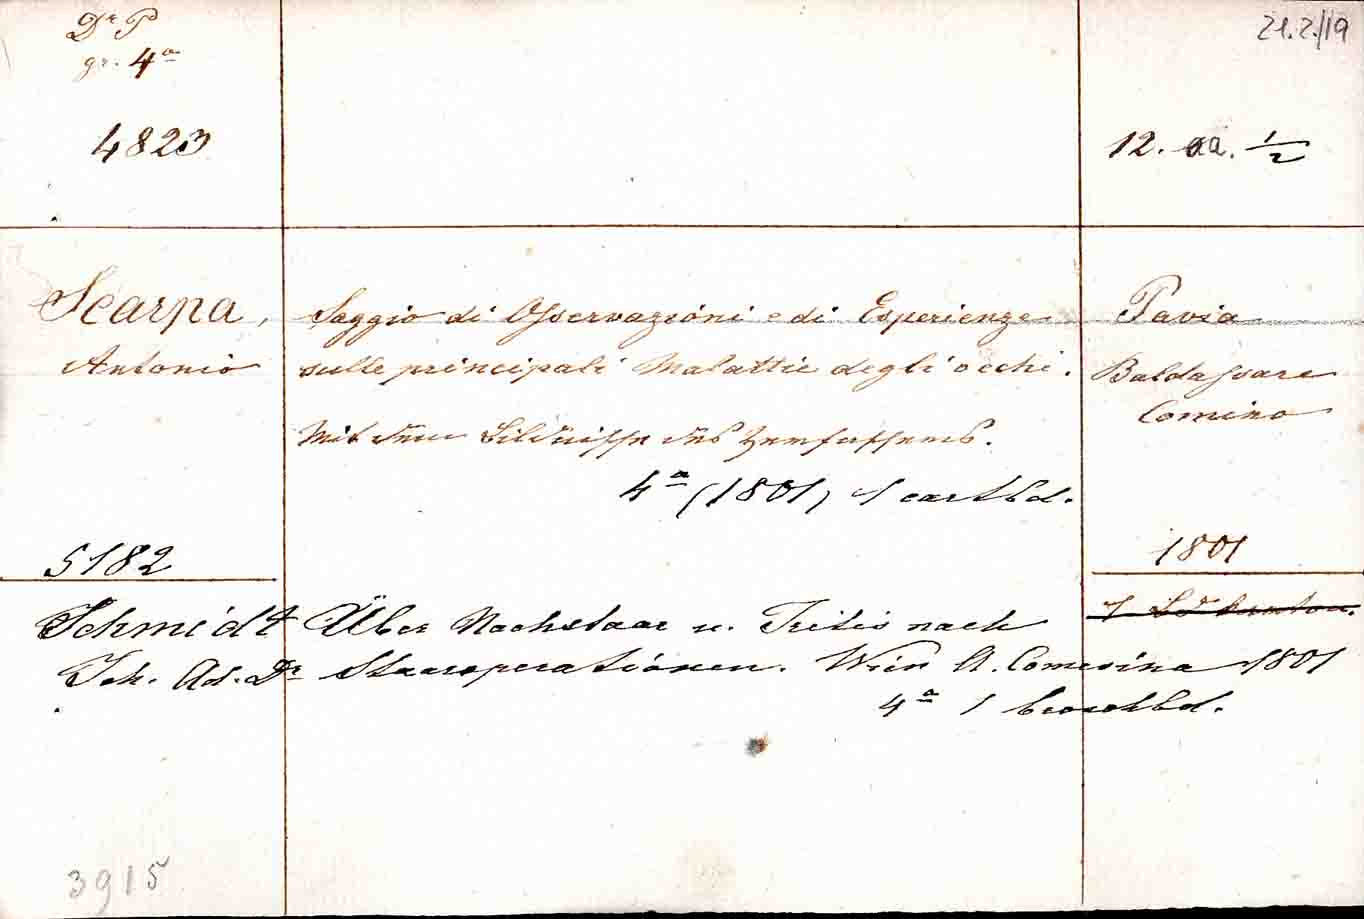 Dr P
gr. 4a
21.2./19
4823
12. aa. 1/2
Scarpa,
Antonio
Saggio di Osservazioni e di Esperienze
sulle principali Malattie degli occhi.
Mit dem Bildnisse des Verfassers.
4a (1801) 1 cartbd.
Pavia
Baldassare
Comino
1801
5182
Schmidt Über Nachstaar u. Iritis nach
Joh. Ad. Dr Staaroperationen. Wien A. Camesina 1801
4a 1 broschbd.
3915